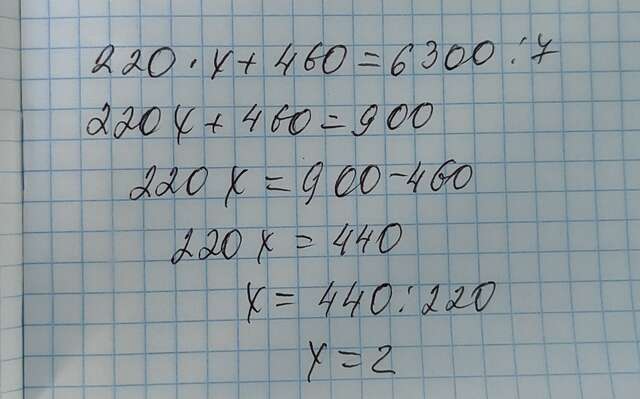 220 · x + 460 = 6300 : 7
220x + 460 = 900
220x = 900 - 460
220x = 440
x = 440 : 220
x = 2